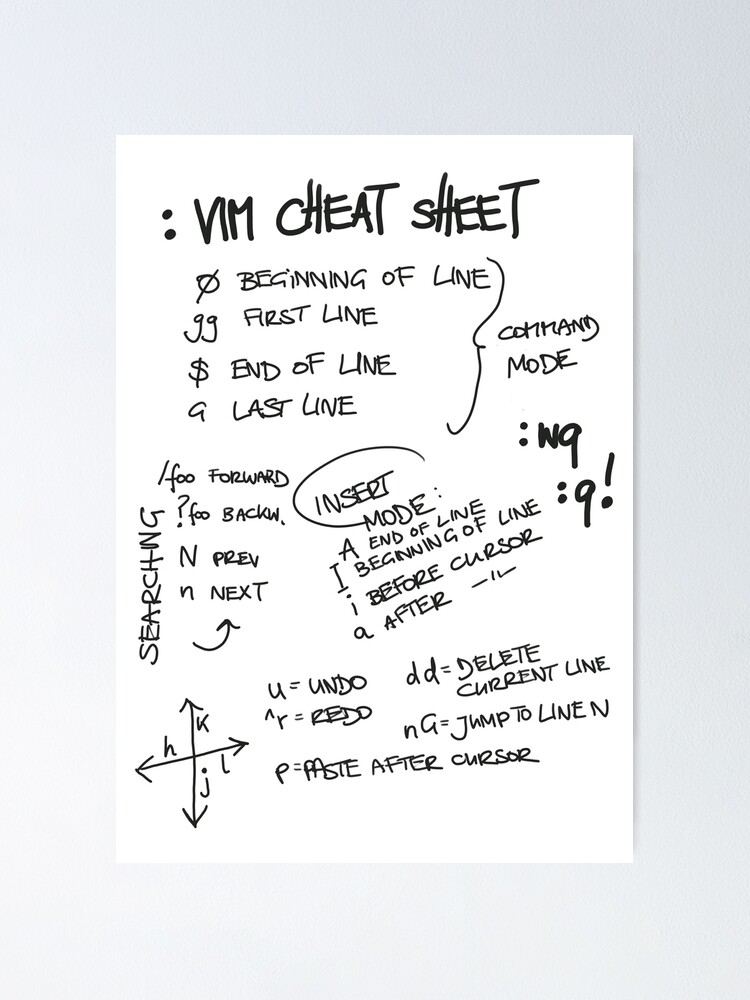 : VIM CHEAT SHEET
0 BEGINNING OF LINE
gg FIRST LINE
$ END OF LINE
G LAST LINE
COMMAND
MODE
:wq
:q!
SEARCHING
/foo FORWARD
?foo BACKW.
N PREV
n NEXT
INSERT
MODE:
A END OF LINE
I BEGINNING OF LINE
i BEFORE CURSOR
a AFTER —"—
u = UNDO
^r = REDO
p = PASTE AFTER CURSOR
dd = DELETE
CURRENT LINE
nG = JUMP TO LINE N
k
h
l
j